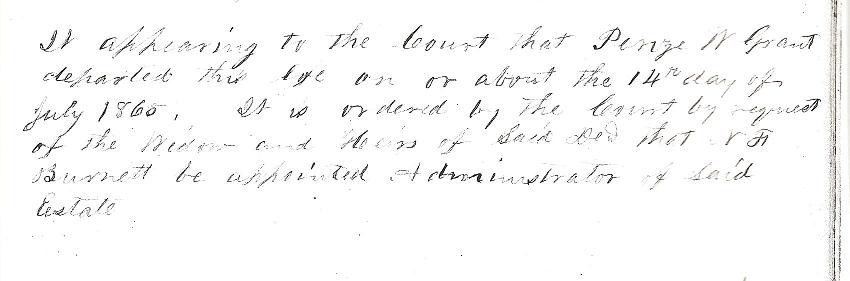 It appearing to the Court that Penze W Grant
departed this life on or about the 14th day of
July 1865. It is ordered by the Court by request
of the Widow and Heirs of Said Decd that N F
Burnett be appointed Administrator of Said
Estate